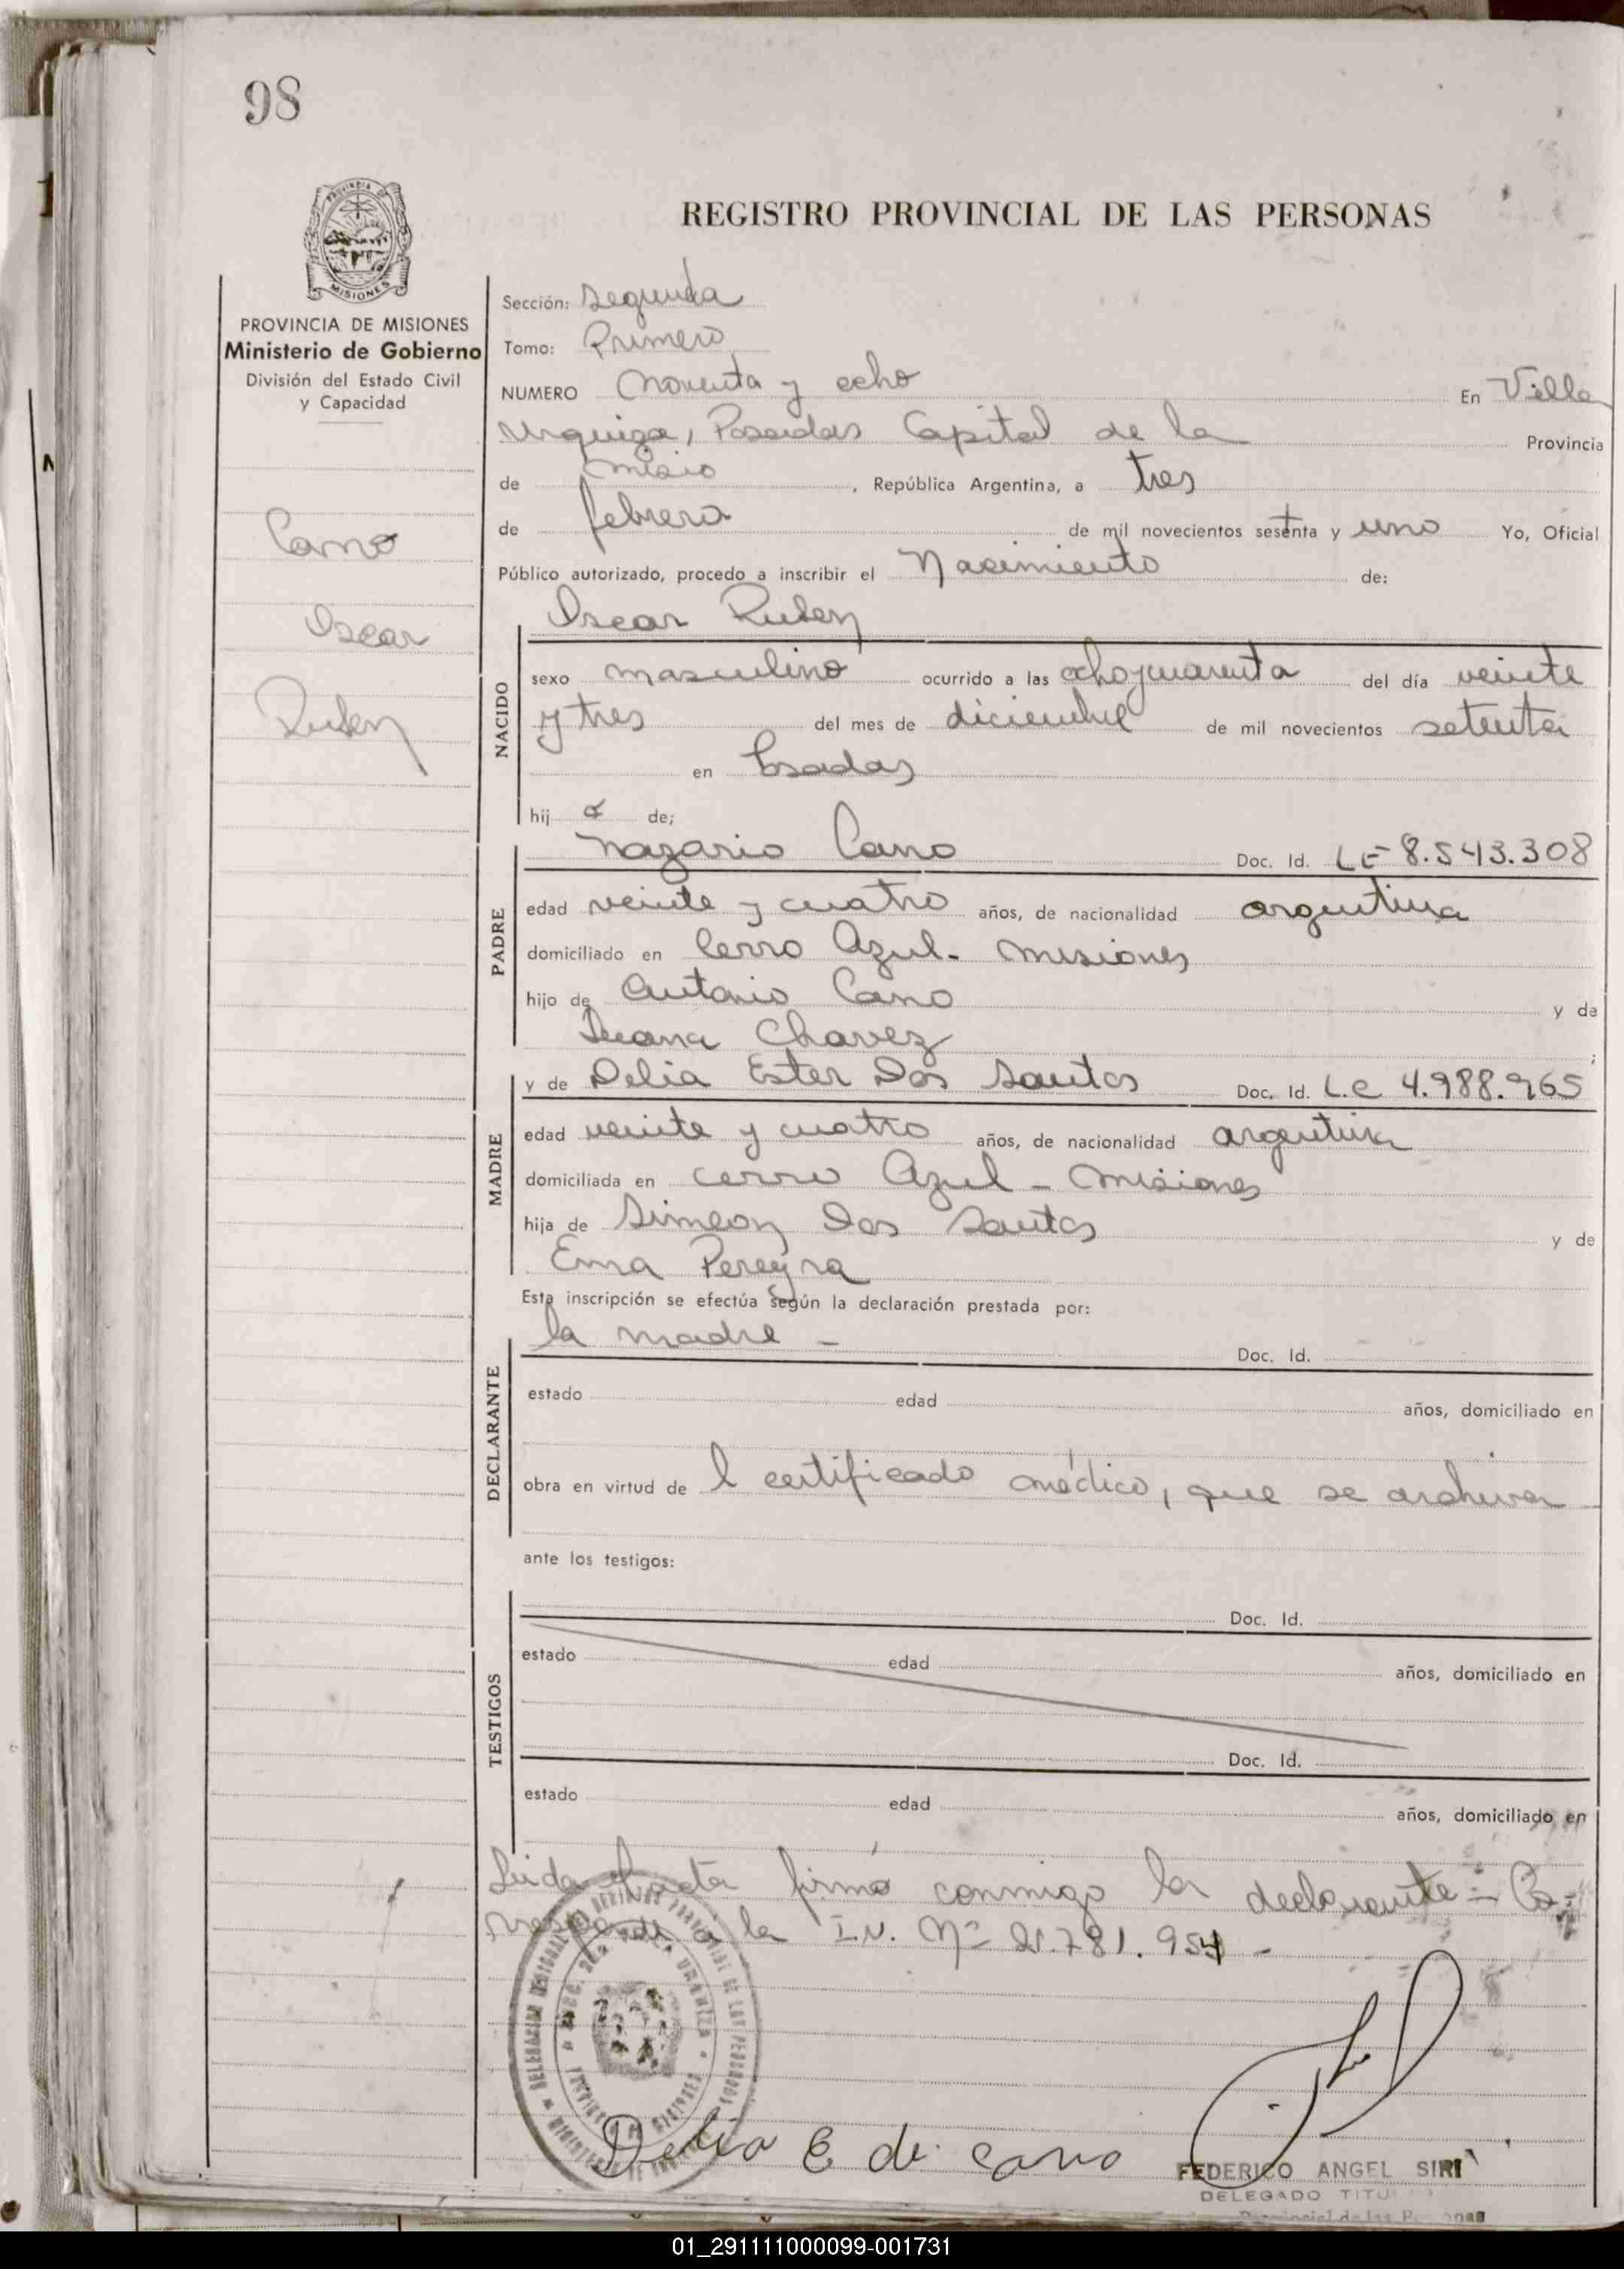 98
PROVINCIA DE
MISIONES
PROVINCIA DE MISIONES
Ministerio de Gobierno
División del Estado Civil
y Capacidad
Cano
Oscar
Ruben
REGISTRO PROVINCIAL DE LAS PERSONAS
Sección: Segunda
Tomo: Primero
NUMERO Noventa y ocho En Villa
Urquiza, Posadas Capital de la Provincia
de Misio, República Argentina, a tres
de febrero de mil novecientos sesenta y uno Yo, Oficial
Público autorizado, procedo a inscribir el Nacimiento de:
Oscar Ruben
NACIDO
sexo masculino ocurrido a las ocho y cuarenta del día veinte
y tres del mes de diciembre de mil novecientos setenta
en Posadas
hij o de;
PADRE
Nazario Cano Doc. Id. LE 8.543.308
edad veinte y cuatro años, de nacionalidad argentina
domiciliado en Cerro Azul - Misiones
hijo de Antonio Cano y de
Juana Chavez;
MADRE
y de Delia Ester Dos Santos Doc. Id. L.C 4.988.965
edad veinte y cuatro años, de nacionalidad argentina
domiciliada en Cerro Azul - Misiones
hija de Simeon Dos Santos y de
Ema Pereyra
Esta inscripción se efectúa según la declaración prestada por:
DECLARANTE
la madre - Doc. Id.
estado edad años, domiciliado en
obra en virtud de l certificado médico, que se archiva
ante los testigos:
TESTIGOS
Doc. Id.
estado edad años, domiciliado en
Doc. Id.
estado edad años, domiciliado en
Leida el acta firmó conmigo la declarante - Co-
rresponde a la I.N. Nº 21.781.954 -
Delia E de Cano
FEDERICO ANGEL SIRI
DELEGADO TITU
01_291111000099-001731